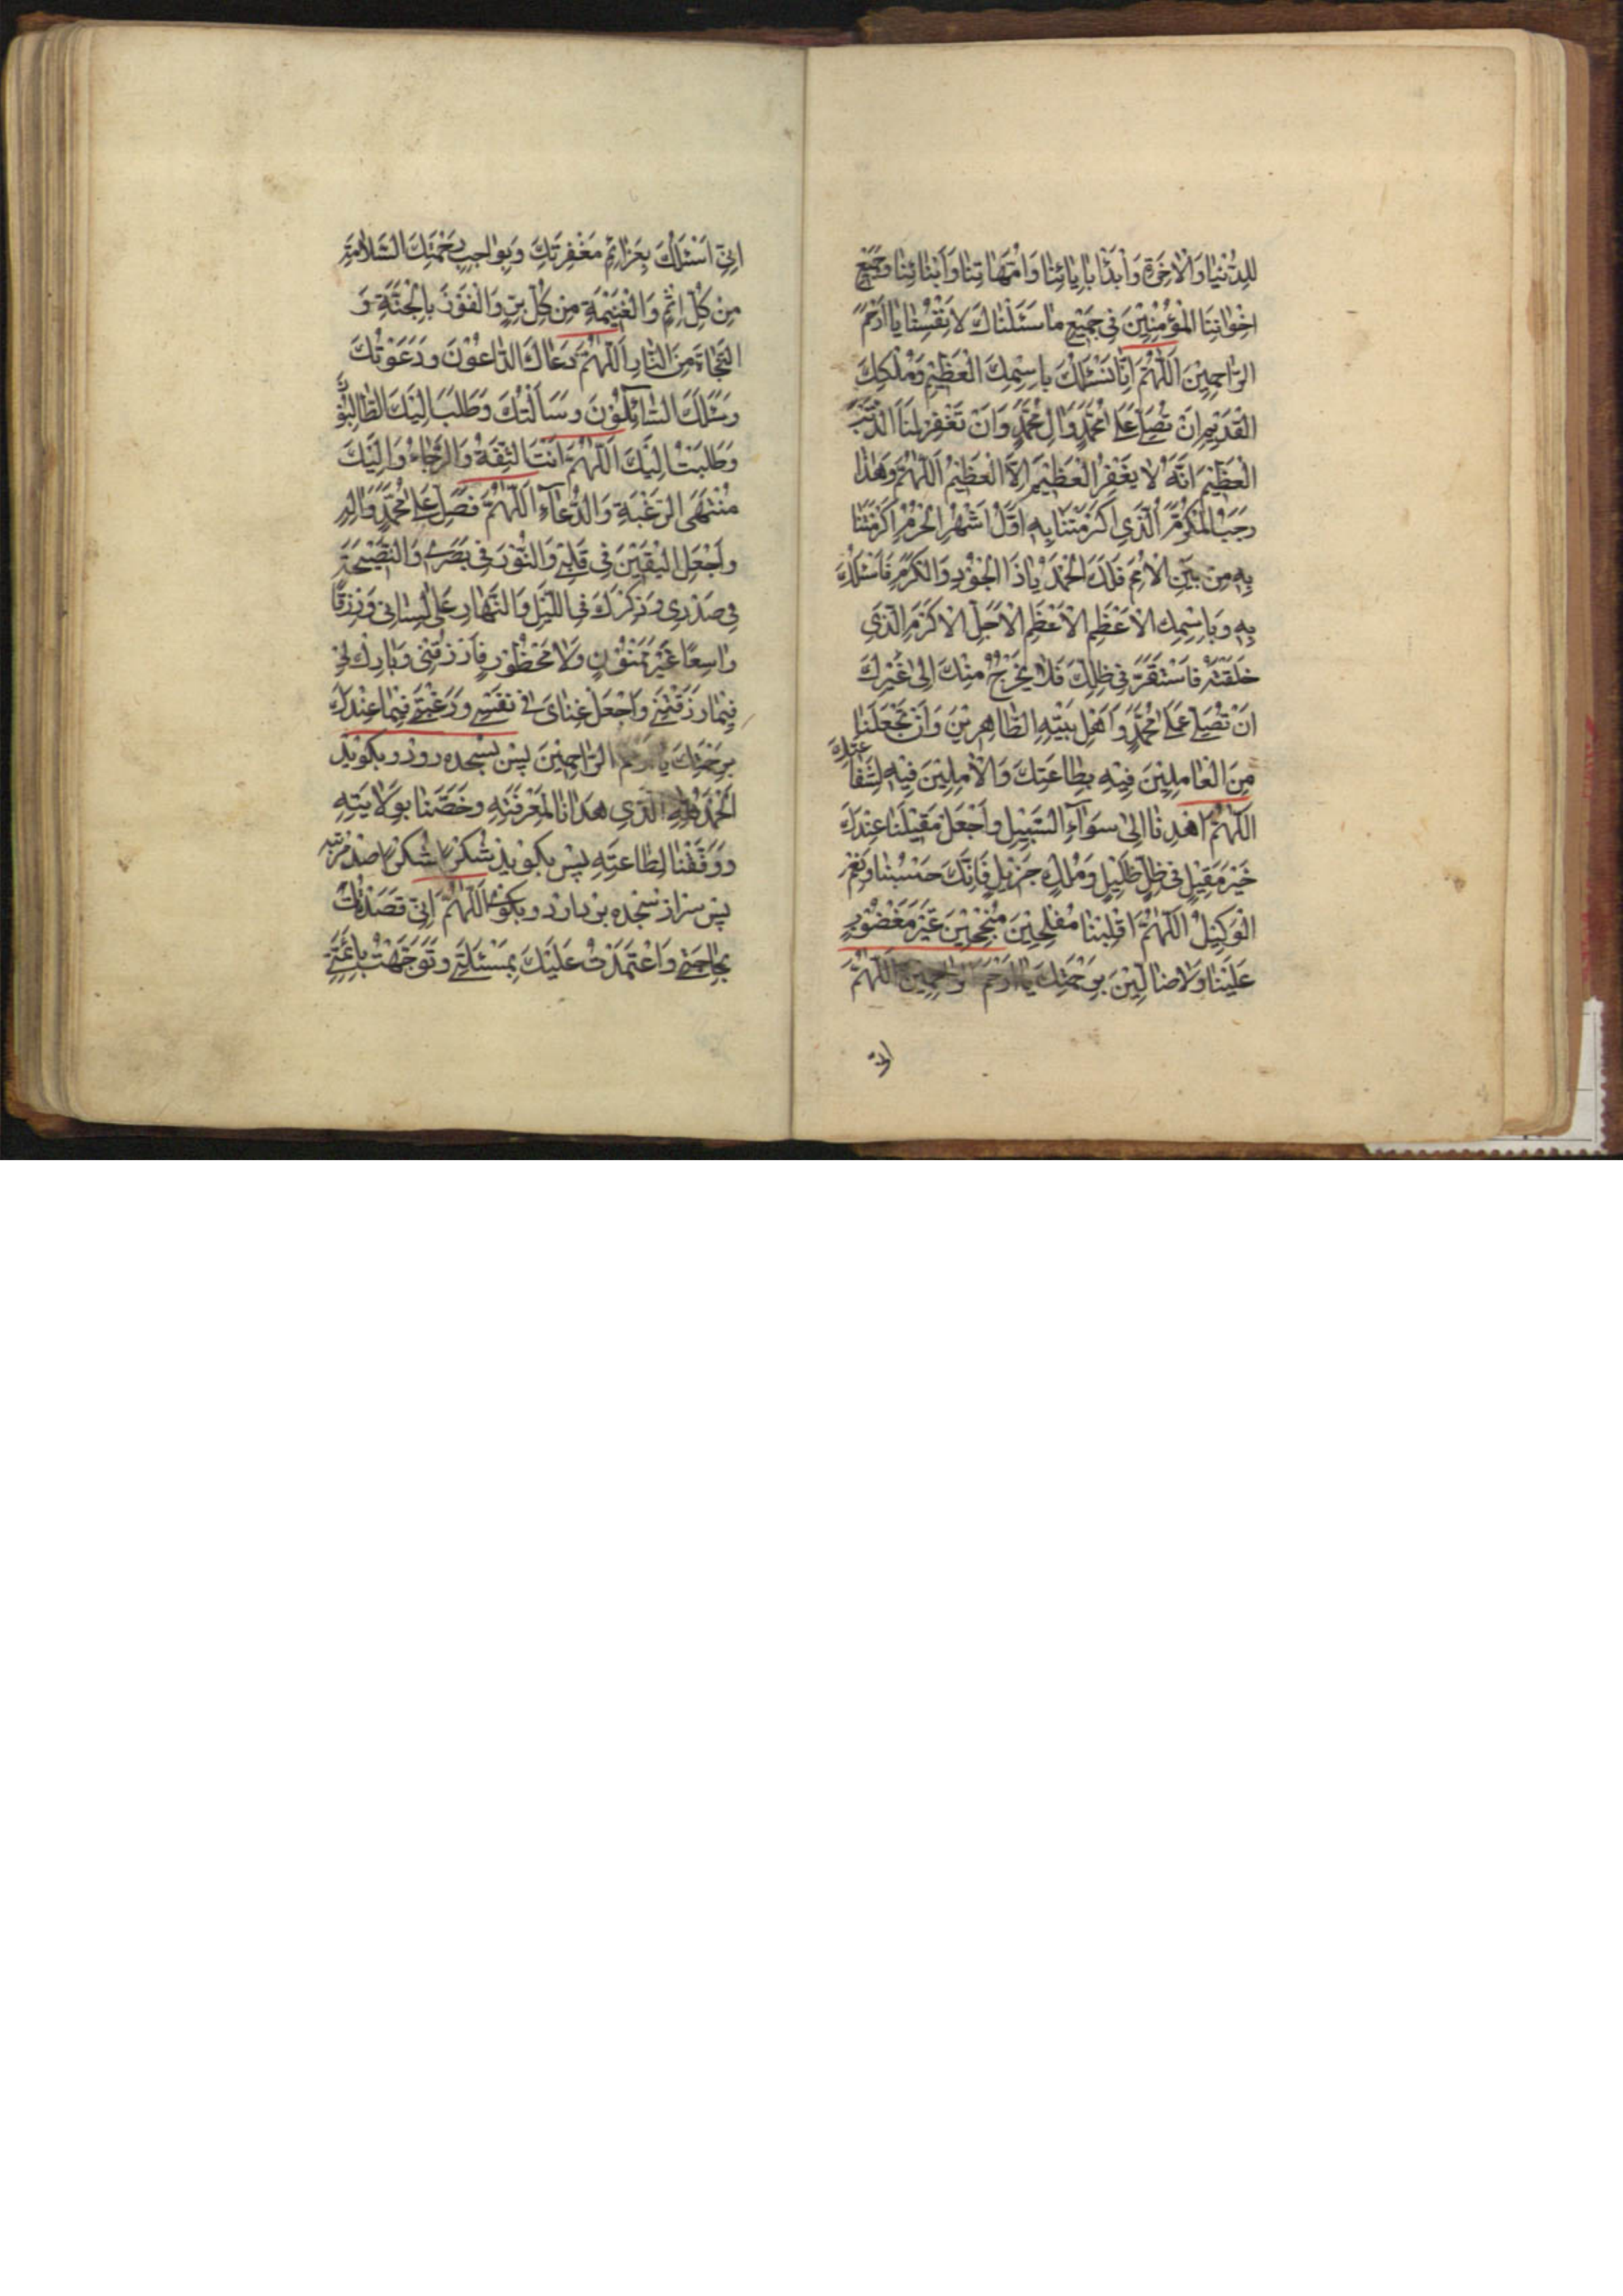 لِلدُّنْيَا وَالْاٰخِرَةِ وَابْدَأْ بِاٰبَائِنَا وَاُمَّهَاتِنَا وَاَبْنَائِنَا وَجَمِيْعِ
اِخْوَانِنَا الْمُؤْمِنِيْنَ فِى جَمِيْعِ مَا سَئَلْنَاكَ لِاَنْفُسِنَا يَا اَرْحَمَ
الرَّاحِمِيْنَ اَللّٰهُمَّ اِنَّا نَسْئَلُكَ بِاسْمِكَ الْعَظِيْمِ وَمُلْكِكَ
الْقَدِيْمِ اَنْ تُصَلِّىَ عَلٰى مُحَمَّدٍ وَاٰلِ مُحَمَّدٍ وَاَنْ تَغْفِرَ لَنَا الذَّنْبَ
الْعَظِيْمَ اِنَّهُ لَا يَغْفِرُ الْعَظِيْمَ اِلَّا الْعَظِيْمُ اَللّٰهُمَّ وَهٰذَا
رَجَبُ الْمُكَرَّمُ الَّذِى اَكْرَمْتَنَا بِهِ اَوَّلُ اَشْهُرِ الْحُرُمِ اَكْرَمْتَنَا
بِهِ مِنْ بَيْنِ الْاُمَمِ فَلَكَ الْحَمْدُ يَا ذَا الْجُوْدِ وَالْكَرَمِ فَاَسْئَلُكَ
بِهِ وَبِاِسْمِكَ الْاَعْظَمِ الْاَعْظَمِ الْاَجَلِّ الْاَكْرَمِ الَّذِى
خَلَقْتَهُ فَاسْتَقَرَّ فِى ظِلِّكَ فَلَا يَخْرُجُ مِنْكَ اِلٰى غَيْرِكَ
اَنْ تُصَلِّىَ عَلٰى مُحَمَّدٍ وَاَهْلِ بَيْتِهِ الطَّاهِرِيْنَ وَاَنْ تَجْعَلَنَا
مِنَ الْعَامِلِيْنَ فِيْهِ بِطَاعَتِكَ وَالْاٰمِلِيْنَ فِيْهِ لِشَفَاعَتِكَ
اَللّٰهُمَّ اهْدِنَا اِلٰى سَوَآءِ السَّبِيْلِ وَاجْعَلْ مَقِيْلَنَا عِنْدَكَ
خَيْرَ مَقِيْلٍ فِى ظِلٍّ ظَلِيْلٍ وَمُلْكٍ جَزِيْلٍ فَاِنَّكَ حَسْبُنَا وَنِعْمَ
الْوَكِيْلُ اَللّٰهُمَّ اقْلِبْنَا مُفْلِحِيْنَ مُنْجِحِيْنَ غَيْرَ مَغْضُوْبٍ
عَلَيْنَا وَلَا ضَالِّيْنَ بِرَحْمَتِكَ يَا اَرْحَمَ الرَّاحِمِيْنَ اَللّٰهُمَّ
اِنِّى
اِنِّى اَسْئَلُكَ بِعَزَائِمِ مَغْفِرَتِكَ وَبِوَاجِبِ رَحْمَتِكَ السَّلَامَةَ
مِنْ كُلِّ اِثْمٍ وَالْغَنِيْمَةَ مِنْ كُلِّ بِرٍّ وَالْفَوْزَ بِالْجَنَّةِ وَ
النَّجَاةَ مِنَ النَّارِ اَللّٰهُمَّ دَعَاكَ الدَّاعُوْنَ وَدَعَوْتُكَ
وَسَئَلَكَ السَّائِلُوْنَ وَسَاَلْتُكَ وَطَلَبَ اِلَيْكَ الطَّالِبُوْنَ
وَطَلَبْتُ اِلَيْكَ اَللّٰهُمَّ اَنْتَ الثِّقَةُ وَالرَّجَاءُ وَاِلَيْكَ
مُنْتَهَى الرَّغْبَةِ وَالدُّعَآءِ اَللّٰهُمَّ فَصَلِّ عَلٰى مُحَمَّدٍ وَاٰلِهِ
وَاجْعَلِ الْيَقِيْنَ فِى قَلْبِى وَالنُّوْرَ فِى بَصَرِى وَالنَّصِيْحَةَ
فِى صَدْرِى وَذِكْرَكَ فِى اللَّيْلِ وَالنَّهَارِ عَلٰى لِسَانِى وَرِزْقًا
وَاسِعًا غَيْرَ مَمْنُوْنٍ وَلَا مَحْظُوْرٍ فَارْزُقْنِى وَبَارِكْ لِى
فِيْمَا رَزَقْتَنِى وَاجْعَلْ غِنَاىَ فِى نَفْسِى وَرَغْبَتِى فِيْمَا عِنْدَكَ
بِرَحْمَتِكَ يَا اَرْحَمَ الرَّاحِمِيْنَ پس بسجده رود و بكويد
اَلْحَمْدُ لِلّٰهِ الَّذِى هَدَانَا لِمَعْرِفَتِهِ وَخَصَّنَا بِوِلَايَتِهِ
وَوَفَّقَنَا لِطَاعَتِهِ پس بكويد شُكْرًا شُكْرًا صد مرتبه
پس سر از سجده بردارد و بكويد اَللّٰهُمَّ اِنِّى قَصَدْتُكَ
بِحَاجَتِى وَاعْتَمَدْتُ عَلَيْكَ بِمَسْئَلَتِى وَتَوَجَّهْتُ بِاَئِمَّتِى